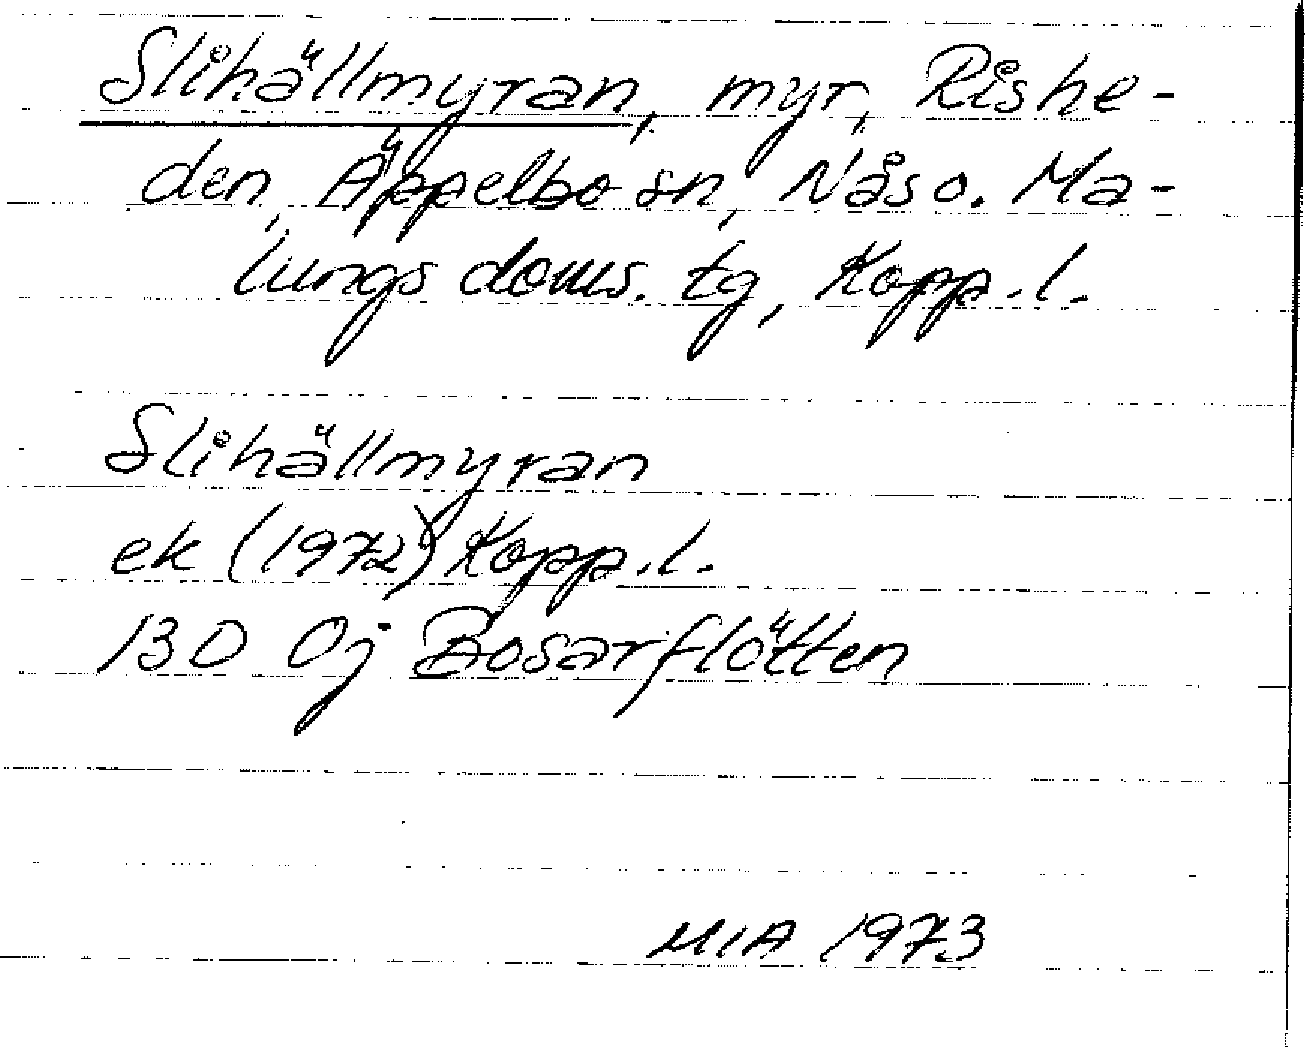 Slihällmyran, myr, Rishe-
den, Äppelbo sn, Nås o. Ma-
lungs doms. tg, Kopp. l.
Slihällmyran
ek (1972) Kopp. l.
13D 0j Bosarflötten
MIA 1973